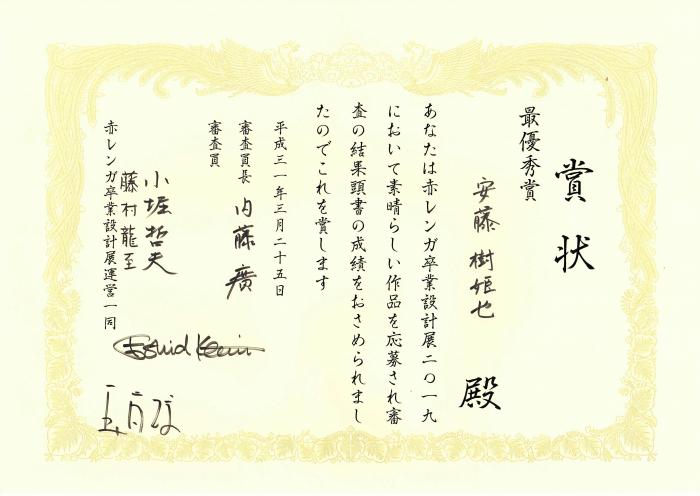 賞状
最優秀賞
安藤樹姫也 殿
あなたは赤レンガ卒業設計展二〇一九
において素晴らしい作品を応募され審
査の結果頭書の成績をおさめられまし
たのでこれを賞します
平成三一年三月二十五日
審査員長 内藤廣
審査員
小堀哲夫
藤村龍至
赤レンガ卒業設計展運営一同